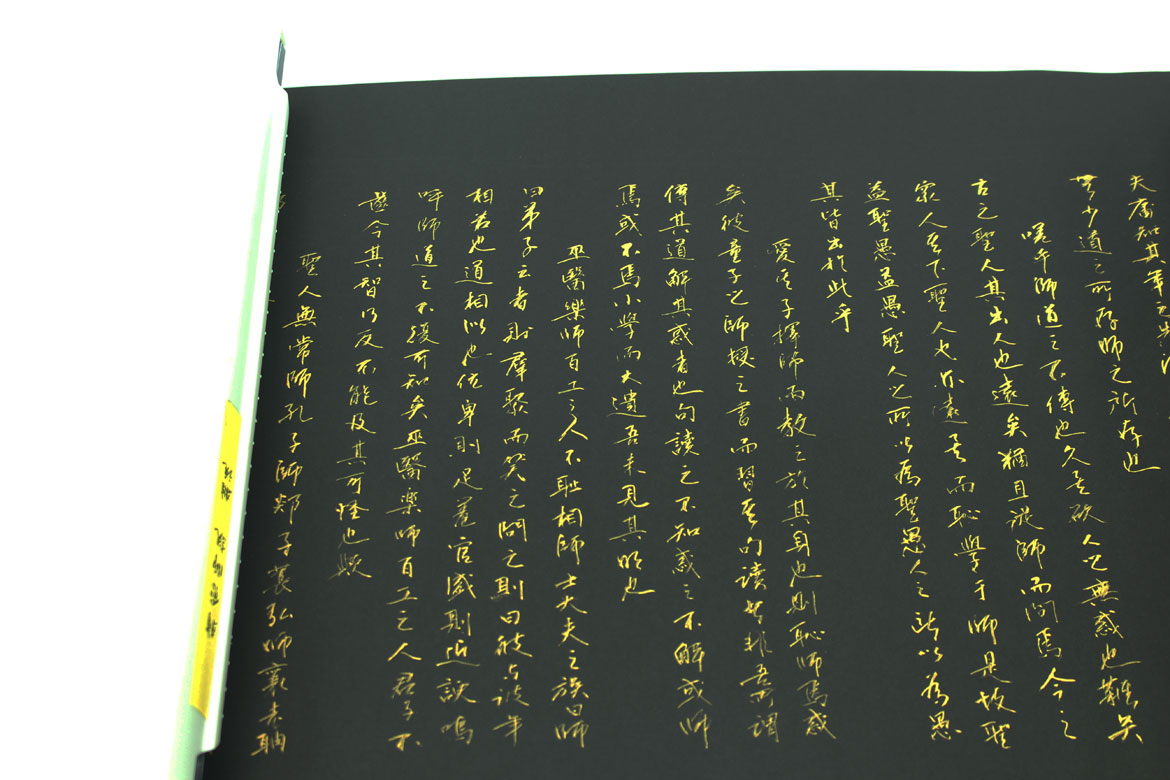 夫庸知其年之先後
無少道之所存師之所存也
嗟乎師道之不傳也久矣欲人之無惑也難矣
古之聖人其出人也遠矣猶且從師而問焉今之
眾人其下聖人也亦遠矣而恥學于師是故聖
益聖愚益愚聖人之所以為聖愚人之所以為愚
其皆出於此乎
愛其子擇師而教之於其身也則恥師焉惑
矣彼童子之師授之書而習其句讀者非吾所謂
傳其道解其惑者也句讀之不知惑之不解或師
焉或不焉小學而大遺吾未見其明也
巫醫樂師百工之人不耻相師士大夫之族曰師
曰弟子云者則羣聚而笑之問之則曰彼与彼年
相若也道相似也位卑則足羞官盛則近諛嗚
呼師道之不復可知矣巫醫樂師百工之人君子不
齒今其智乃反不能及其可怪也歟
聖人無常師孔子師郯子萇弘師襄老聃